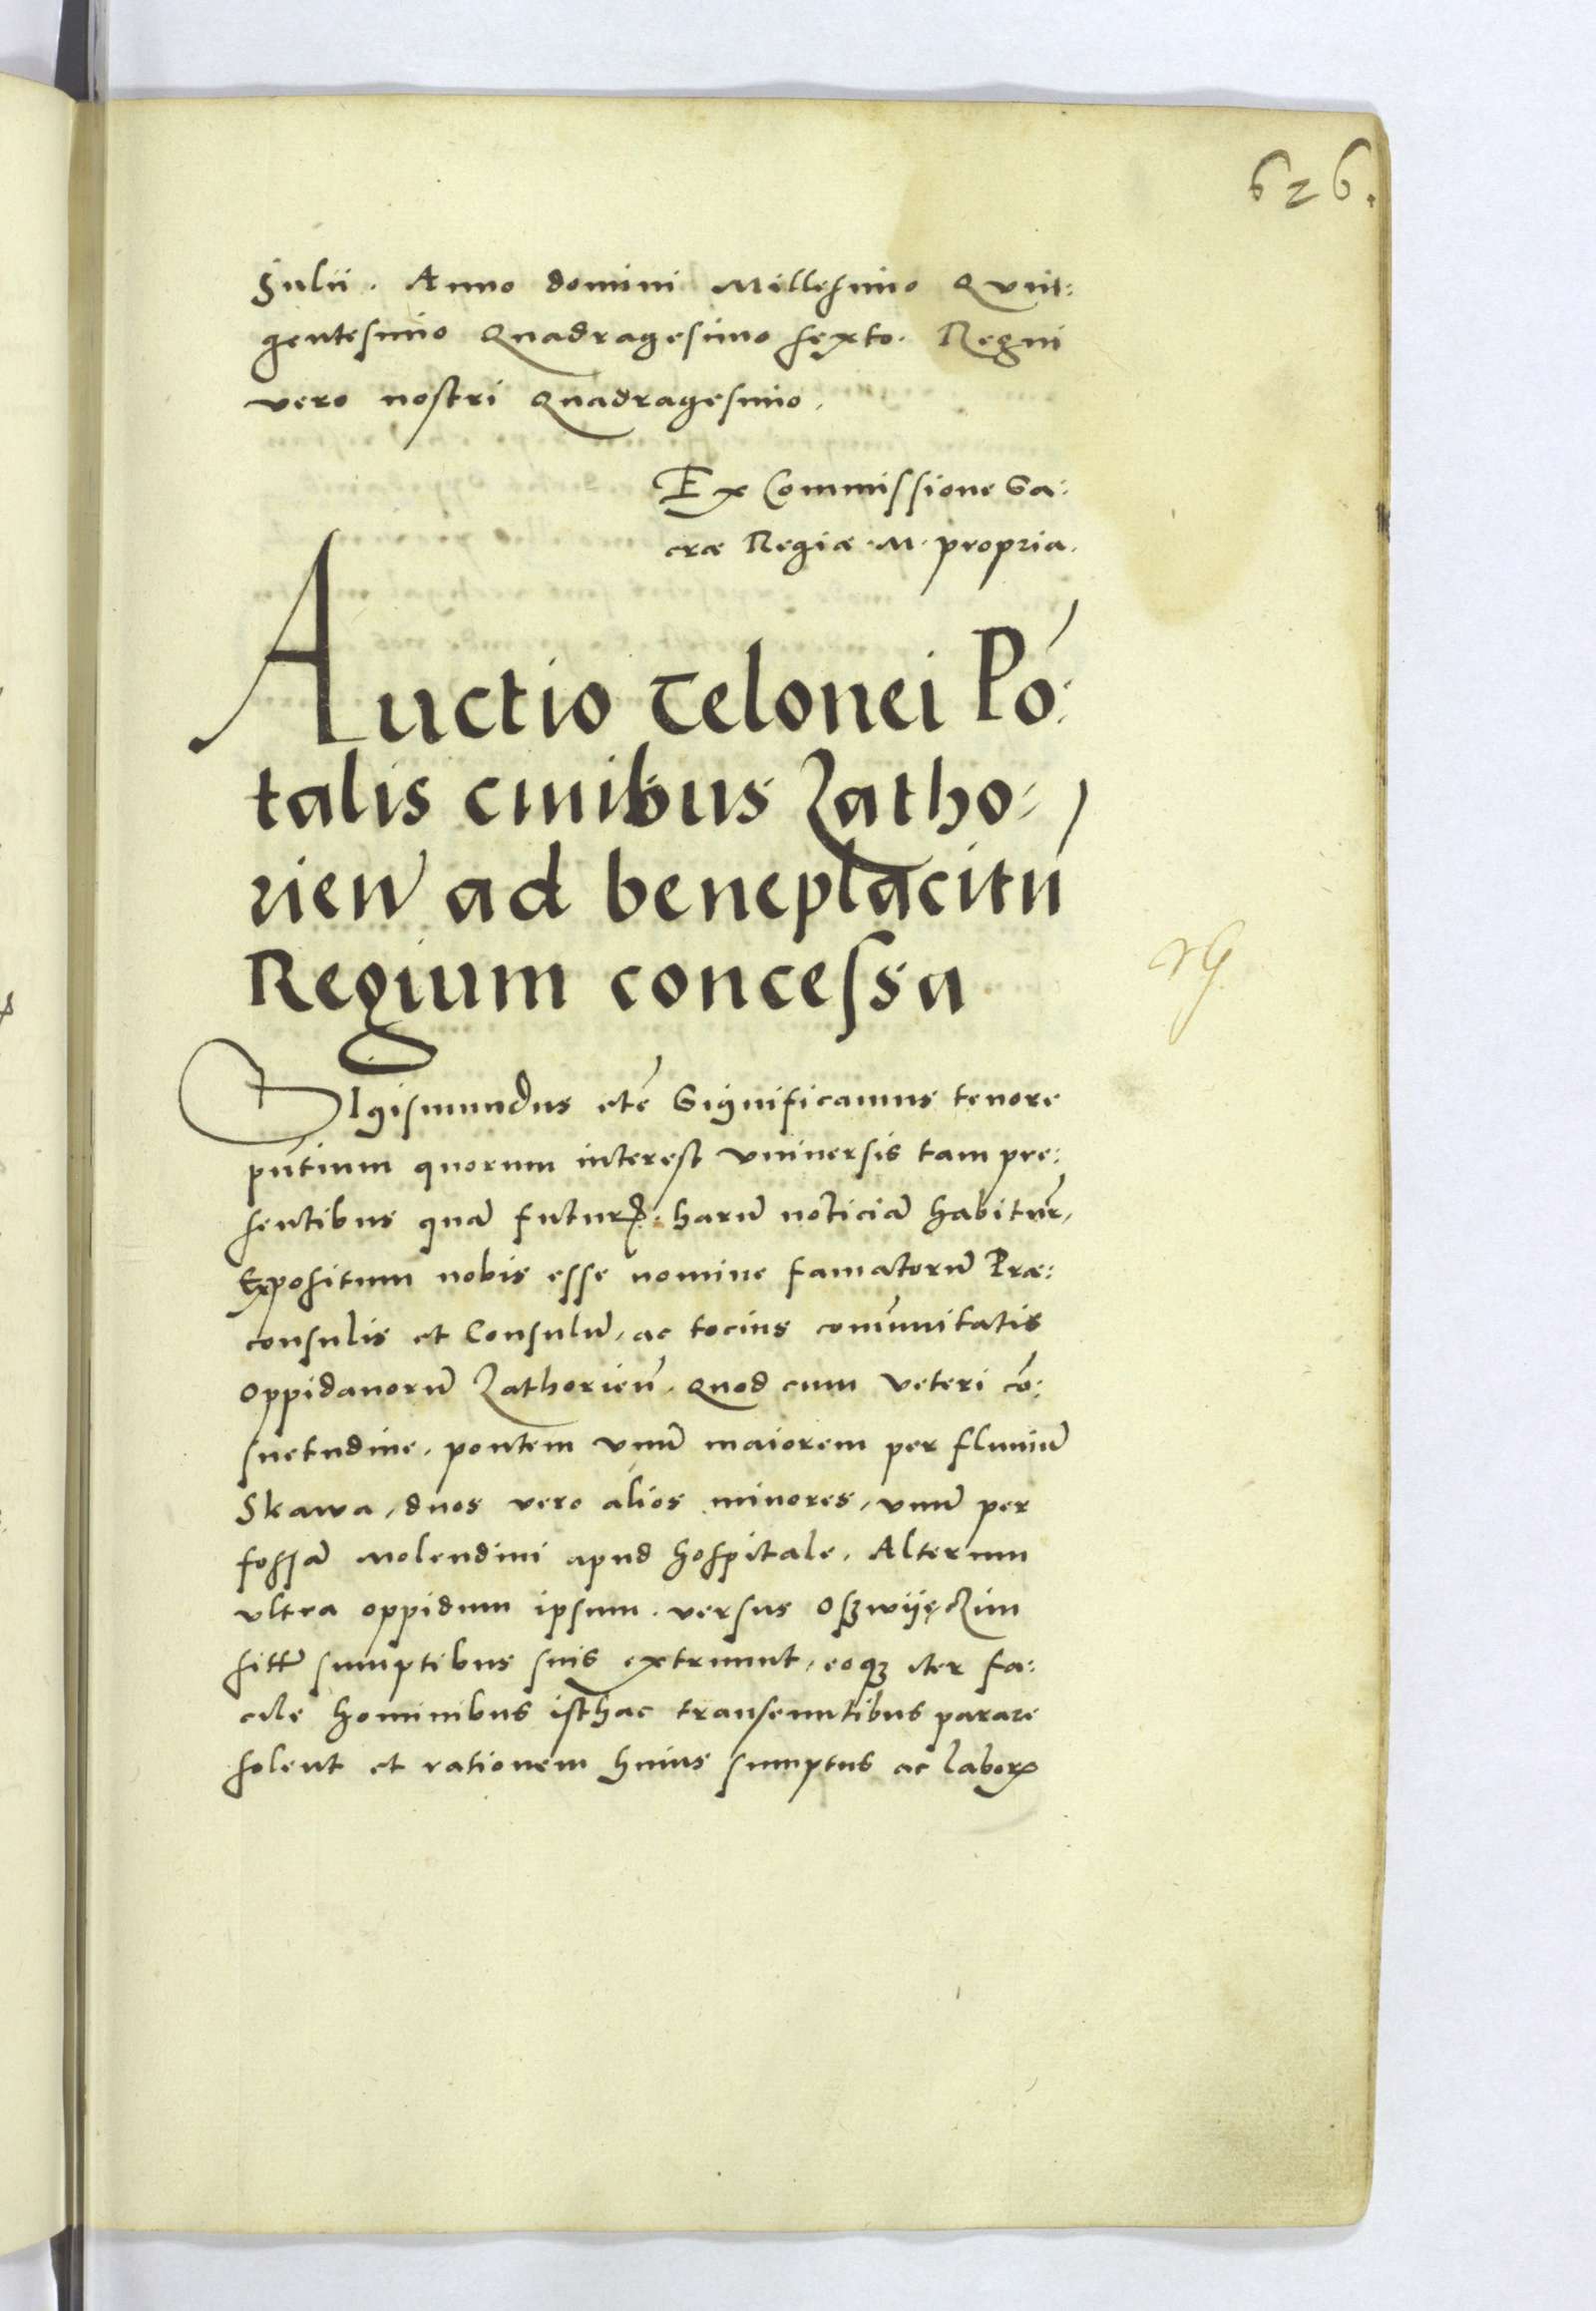 626.
Julii. Anno domini Millesimo Quin:
gentesimo Quadragesimo sexto. Regni
vero nostri Quadragesimo.
Ex Commissione Sa:
cræ Regiæ .M. propria.
Auctio Telonei Pō:
talis ciuibus Zatho:
rien̄ ad beneplacitū
Regium concessa
SIgismundus etc̄ Significamus tenore
pn̄tium quorum interest vniuersis tam pre:
sentibus quā futurꝭ. harū noticiā habitur̄,
Expositum nobis esse nomine famatorū Præ:
consulis et Consulū, ac tocius com̄unitatis
oppidanorū Zathorien̄. Quod cum veteri cō:
suetudine, pontem vnū maiorem per fluuiū
Skawa, duos vero alios minores, vnū per
fossā Molendini apud hospitale, Alterum
vltra oppidum ipsum versus Oszwijęczim
sitū sumptibus suis extruunt, eoqȝ iter fa:
cile hominibus isthac transeuntibus parare
solent et rationem huius sumptus ac laborꝭ